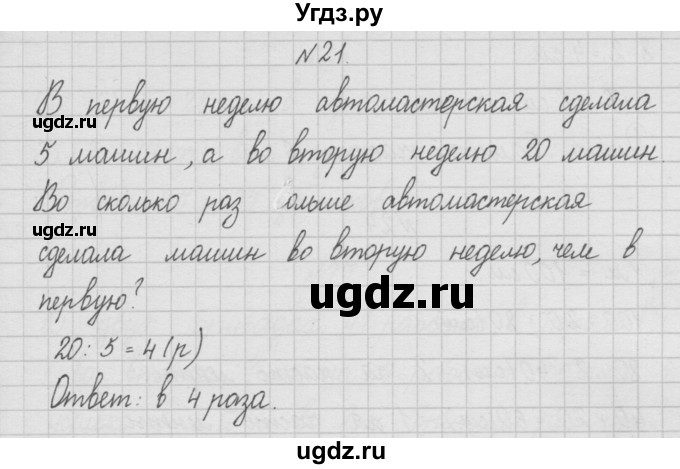 Угдз.ру
№21.
В первую неделю автомастерская сделала
ugdz.ru
5 машин, а во вторую неделю 20 машин.
Во сколько раз ольше автомастерская
ugdz.ru
сделала машин во вторую неделю, чем в
первую?
ugdz.ru
ugdz.ru
20 : 5 = 4 (р)
Ответ: в 4 раза.
ugdz.ru
ugdz.ru